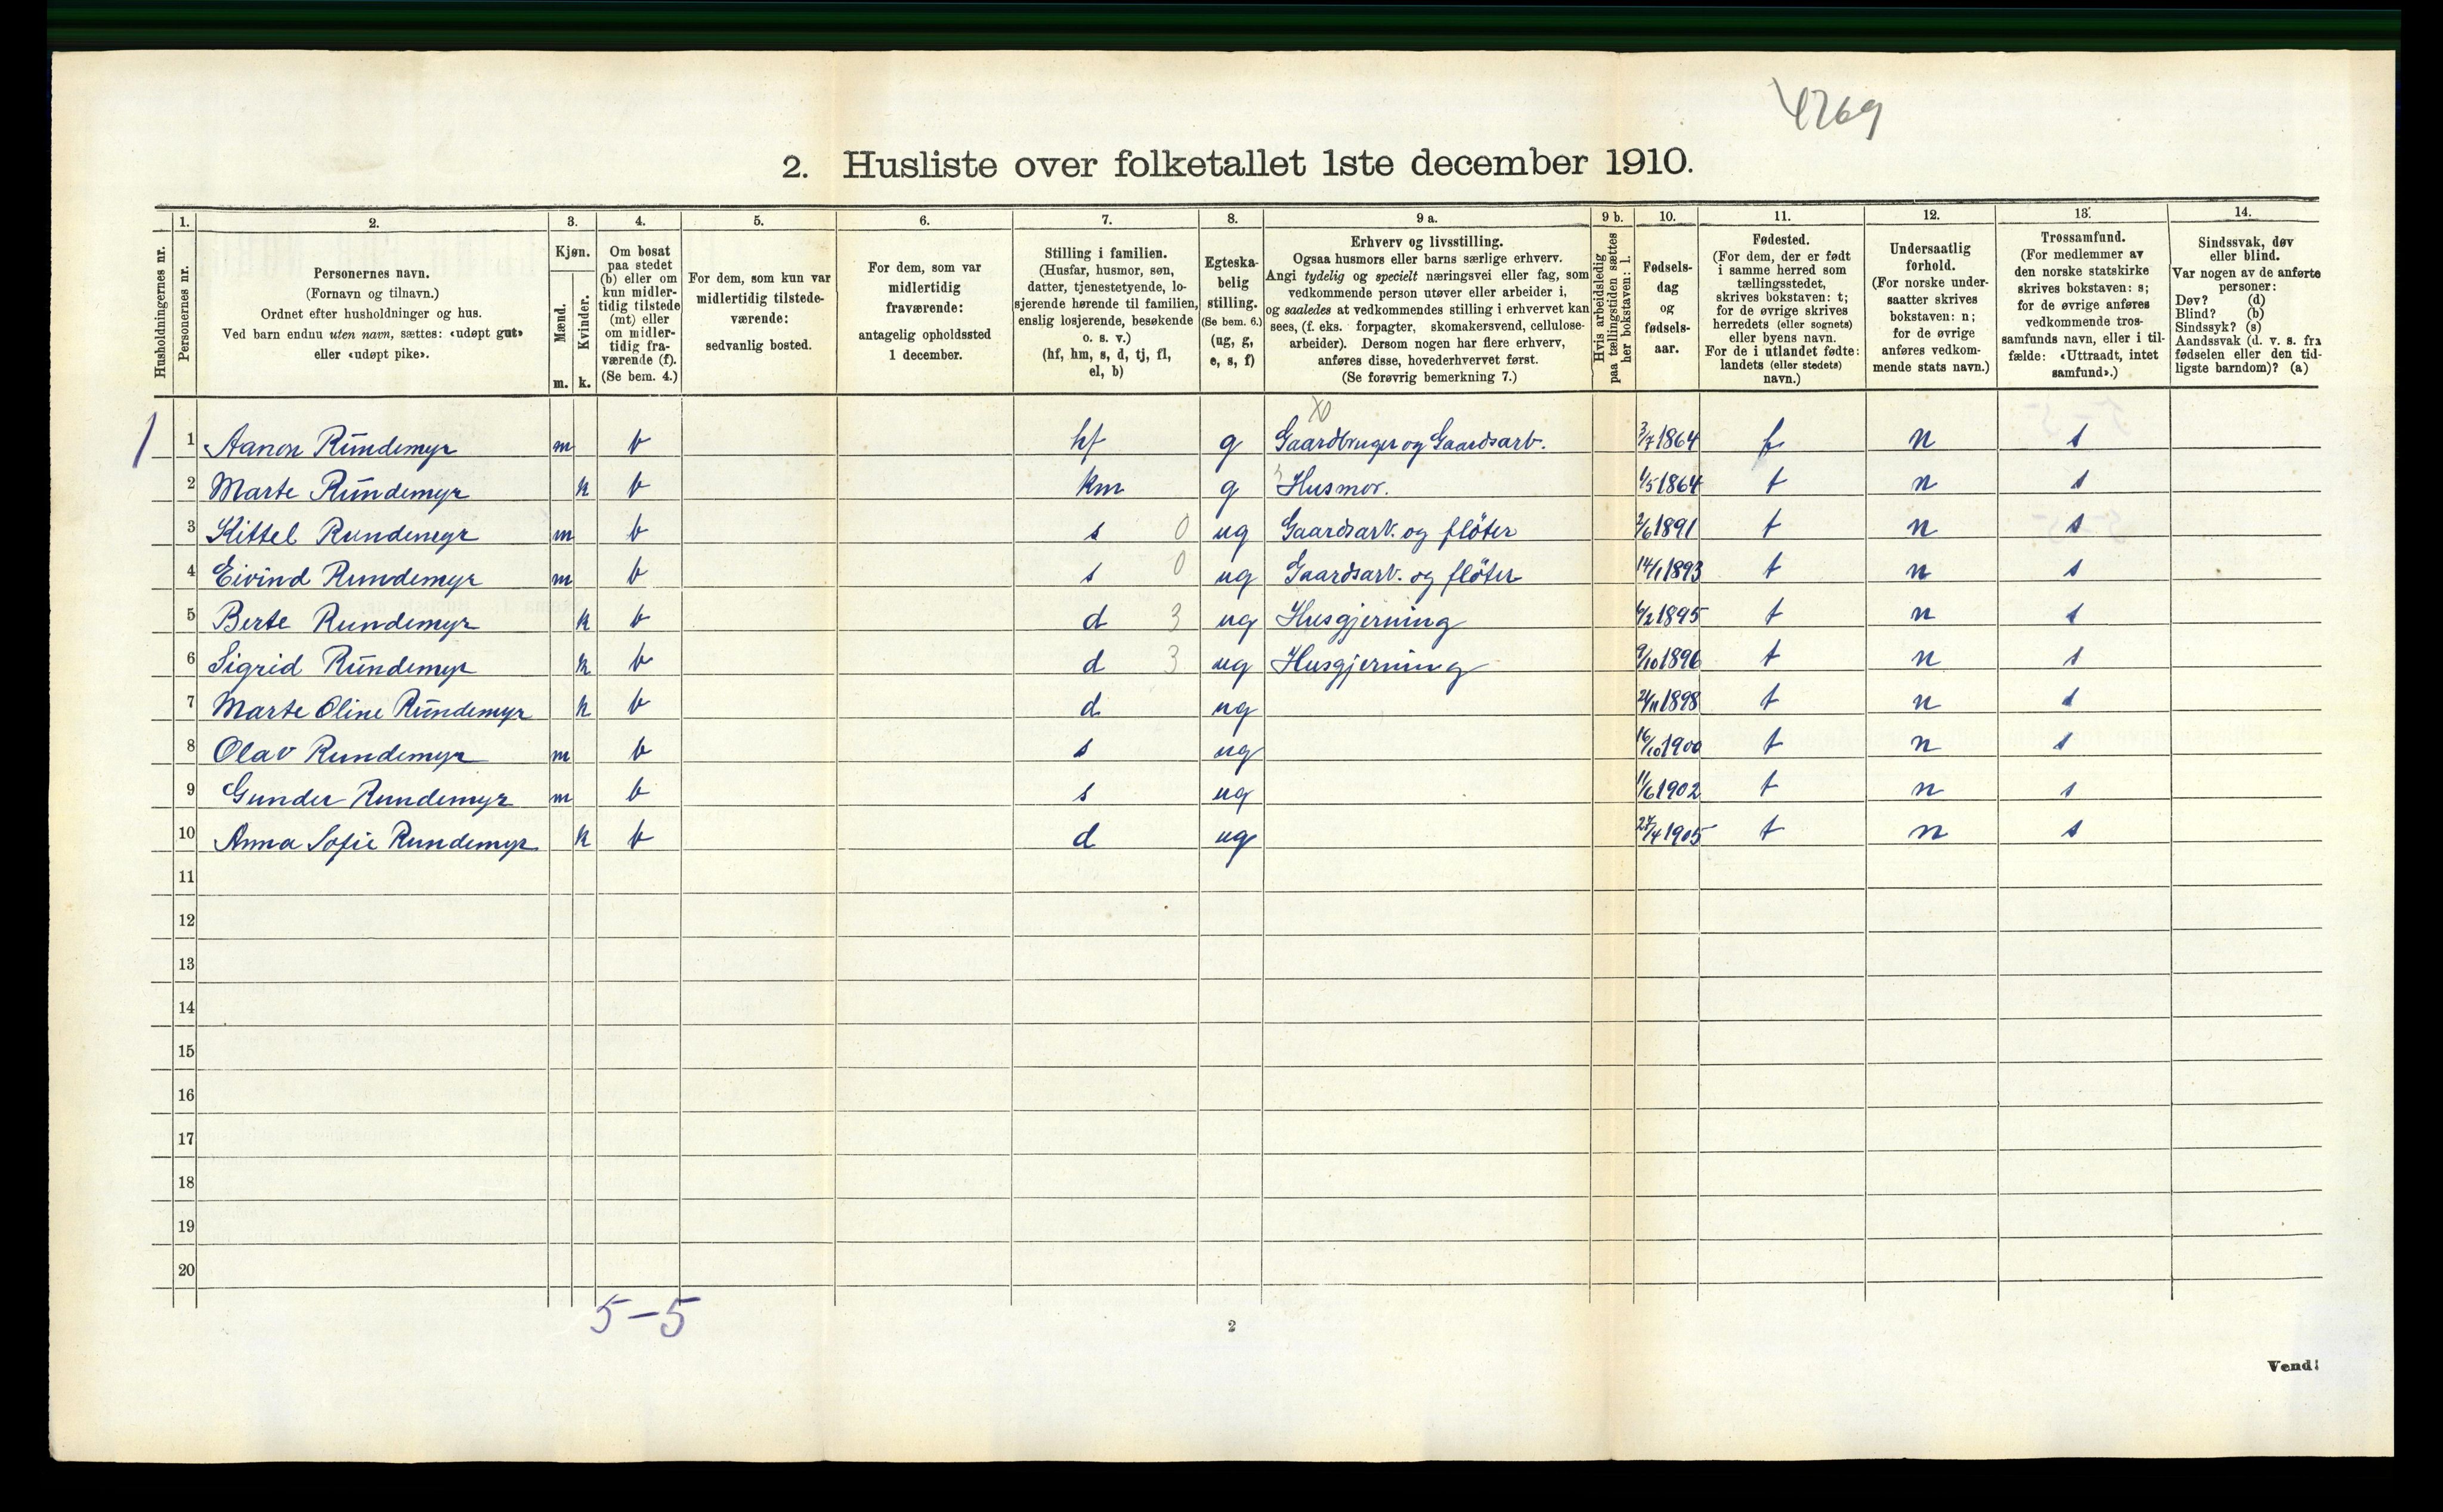 4269
2. Husliste over folketallet 1ste december 1910.
Husholdningernes nr.
1. Personernes nr.
2. Personernes navn.
(Fornavn og tilnavn.)
Ordnet efter husholdninger og hus.
Ved barn endnu uten navn, sættes: «udøpt gut»
eller «udøpt pike».
3. Kjøn.
Mænd. m.
Kvinder. k.
4. Om bosat
paa stedet
(b) eller om
kun midler-
tidig tilstede
(mt) eller
om midler-
tidig fra-
værende (f).
(Se bem. 4.)
5. For dem, som kun var
midlertidig tilstede-
værende:
sedvanlig bosted.
6. For dem, som var
midlertidig
fraværende:
antagelig opholdssted
1 december.
7. Stilling i familien.
(Husfar, husmor, søn,
datter, tjenestetyende, lo-
sjerende hørende til familien,
enslig losjerende, besøkende
o. s. v.)
(hf, hm, s, d, tj, fl,
el, b)
8. Egteska-
belig
stilling.
(Se bem. 6.)
(ug, g,
e, s, f)
9 a. Erhverv og livsstilling.
Ogsaa husmors eller barns særlige erhverv.
Angi tydelig og specielt næringsvei eller fag, som
vedkommende person utøver eller arbeider i,
og saaledes at vedkommendes stilling i erhvervet kan
sees, (f. eks. forpagter, skomakersvend, cellulose-
arbeider). Dersom nogen har flere erhverv,
anføres disse, hovederhvervet først.
(Se forøvrig bemerkning 7.)
9 b. Hvis arbeidsledig
paa tællingstiden sættes
her bokstaven: l.
10. Fødsels-
dag
og
fødsels-
aar.
11. Fødested.
(For dem, der er født
i samme herred som
tællingsstedet,
skrives bokstaven: t;
for de øvrige skrives
herredets (eller sognets)
eller byens navn.
For de i utlandet fødte:
landets (eller stedets)
navn.)
12. Undersaatlig
forhold.
(For norske under-
saatter skrives
bokstaven: n;
for de øvrige
anføres vedkom-
mende stats navn.)
13. Trossamfund.
(For medlemmer av
den norske statskirke
skrives bokstaven: s;
for de øvrige anføres
vedkommende tros-
samfunds navn, eller i til-
fælde: «Uttraadt, intet
samfund».)
14. Sindssvak, døv
eller blind.
Var nogen av de anførte
personer:
Døv? (d)
Blind? (b)
Sindssyk? (s)
Aandssvak (d. v. s. fra
fødselen eller den tid-
ligste barndom)? (a)
1 1 Aanon Rundemyr m b hf g Gaardbruger og Gaardsarb. 3/7 1864 t n s
2 Marte Rundemyr k b km g Husmor. 1/5 1864 t n s
3 Kittel Rundemyr m b s 0 ug Gaardsarb. og fløter 2/6 1891 t n s
4 Eivind Rundemyr m b s 0 ug Gaardsarb. og fløter 14/1 1893 t n s
5 Berte Rundemyr k b d 3 ug Husgjerning 6/2 1895 t n s
6 Sigrid Rundemyr k b d 3 ug Husgjerning 9/10 1896 t n s
7 Marte Oline Rundemyr k b d ug 1898 t n s
8 Olav Rundemyr m b s ug 16/10 1900 t n s
9 Gunder Rundemyr m b s ug 11/6 1902 t n s
10 Anna Sofie Rundemyr k b d ug 27/4 1905 t n s
11
12
13
14
15
16
17
18
19
20
5-5
2
Vend!